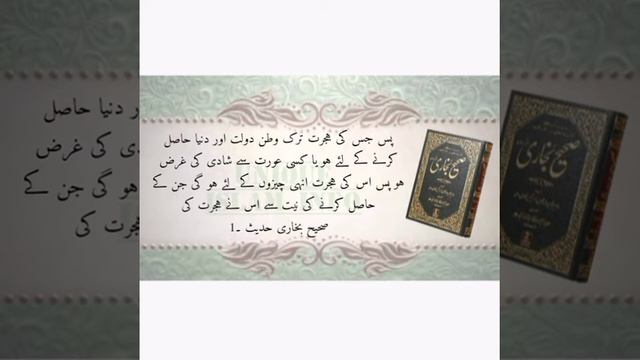 پس جس کی ہجرت ترک وطن دولت اور دنیا حاصل
کرنے کے لئے ہو یا کسی عورت سے شادی کی غرض
ہو پس اس کی ہجرت انہی چیزوں کے لئے ہو گی جن کے
حاصل کرنے کی نیت سے اس نے ہجرت کی
صحیح بخاری حدیث ۔1
صحیح بخاری